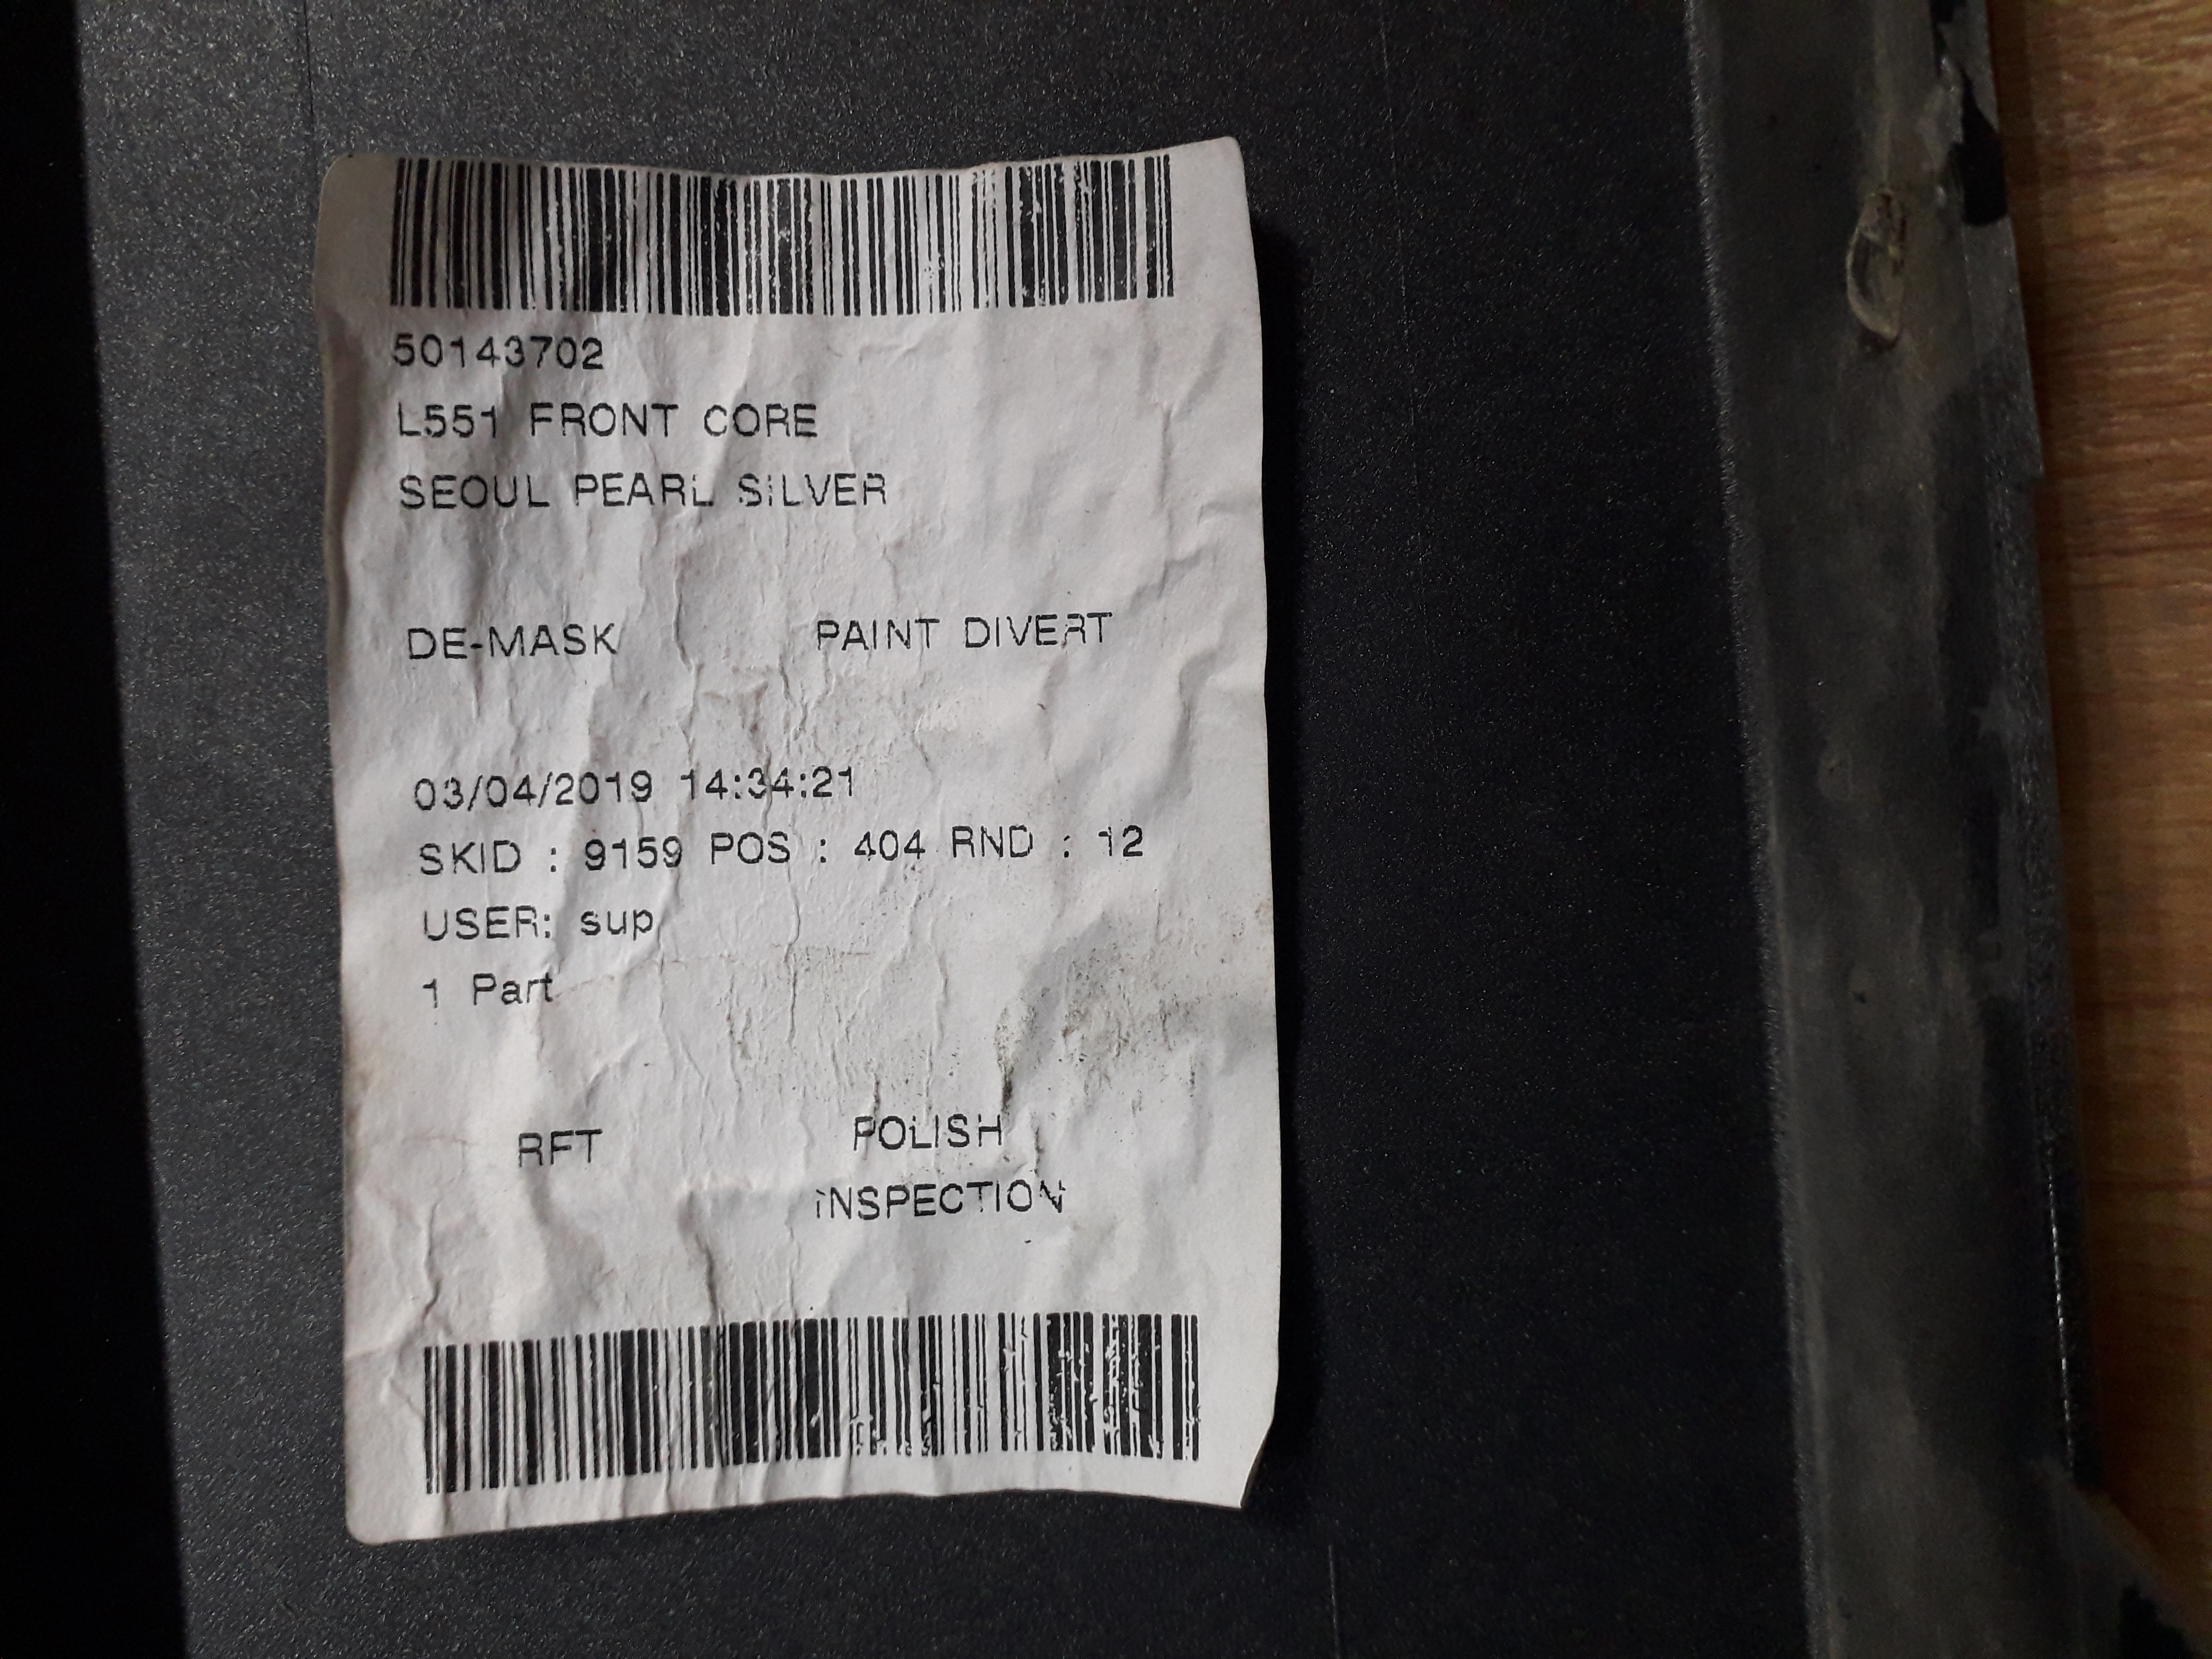 50143702
L551 FRONT CORE
SEOUL PEARL SILVER
DE-MASK PAINT DIVERT
03/04/2019 14:34:21
SKID : 9159 POS : 404 RND : 12
USER: sup
1 Part
RFT POLISH
INSPECTION